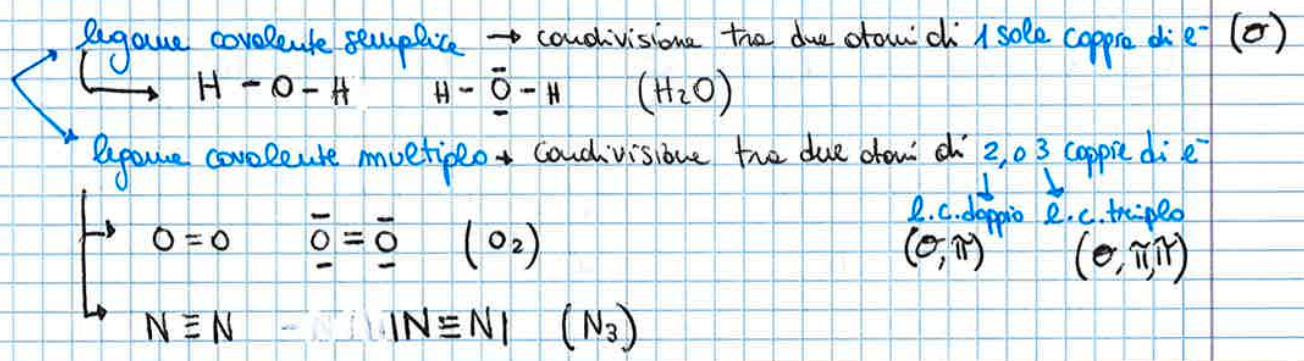 legame covalente semplice → condivisione tra due atomi di 1 sola coppia di e⁻ (σ)
H - O - H H - O̲̅ - H (H₂O)
legame covalente multiplo → condivisione tra due atomi di 2, o 3 coppie di e⁻
l.c. doppio l.c. triplo
(σ, π) (σ, π, π)
O = O O̲̅ = O̲̅ (O₂)
N ≡ N |N ≡ N| (N₃)